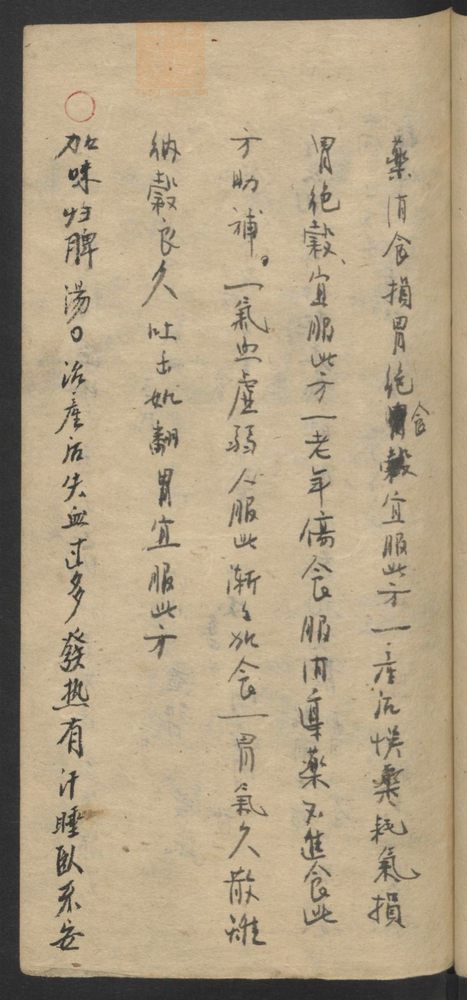 藥消食損胃絕食穀宜服此方一產后悞藥耗氣損
胃絕穀宜服此方一老年傷食服消導藥不進食此
方助補。一氣血虛弱人服此漸々加食一胃氣久散難
納穀良久吐出如翻胃宜服此方
○加味归脾湯○治產后失血过多發热有汗睡臥不安